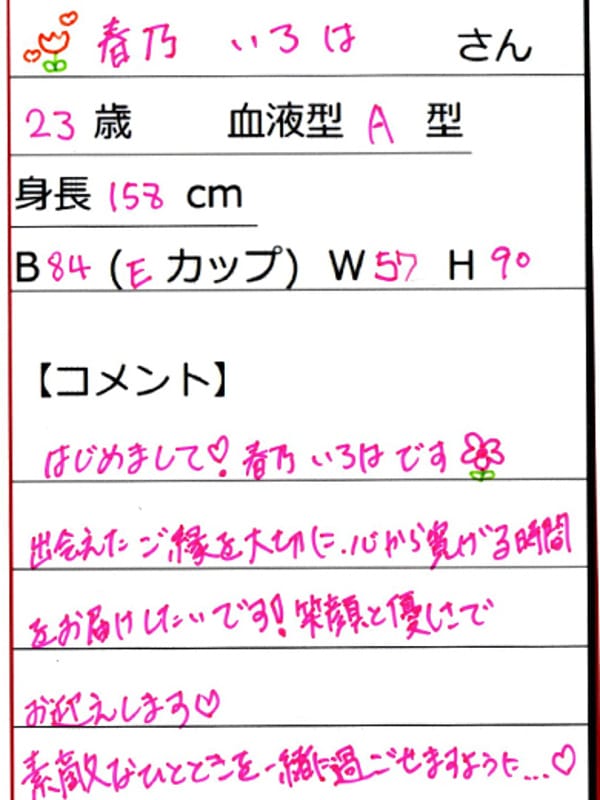 春乃 いろは さん
23 歳 血液型 A 型
身長 158 cm
B 84 (E カップ) W 57 H 90
【コメント】
はじめまして♡ 春乃 いろは です
出会えたご縁を大切に、心から寛げる時間
をお届けしたいです! 笑顔と優しさで
お迎えします♡
素敵なひとときを一緒に過ごせますように...♡